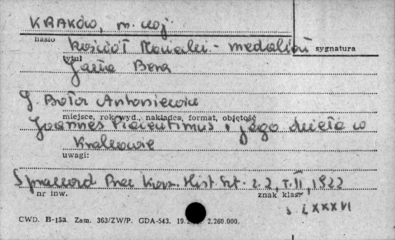 KRAKÓW, m. woj.
hasło
Kościół Mariacki - medalion
sygnatura
tytuł
Jana Bera
J. Bołoz Antoniewicz
miejsce, rok wyd., nakładca, format, objętość
Joannes Florentinus i jego dzieła w
Krakowie
uwagi:
Sprawozd. Prac Kom. Hist. Szt. z. 2, t. II, 1922
nr inw.
znak klas
s. LXXXVI
CWD. B-153. Zam. 363/ZW/P. GDA-543. 2.200.000.